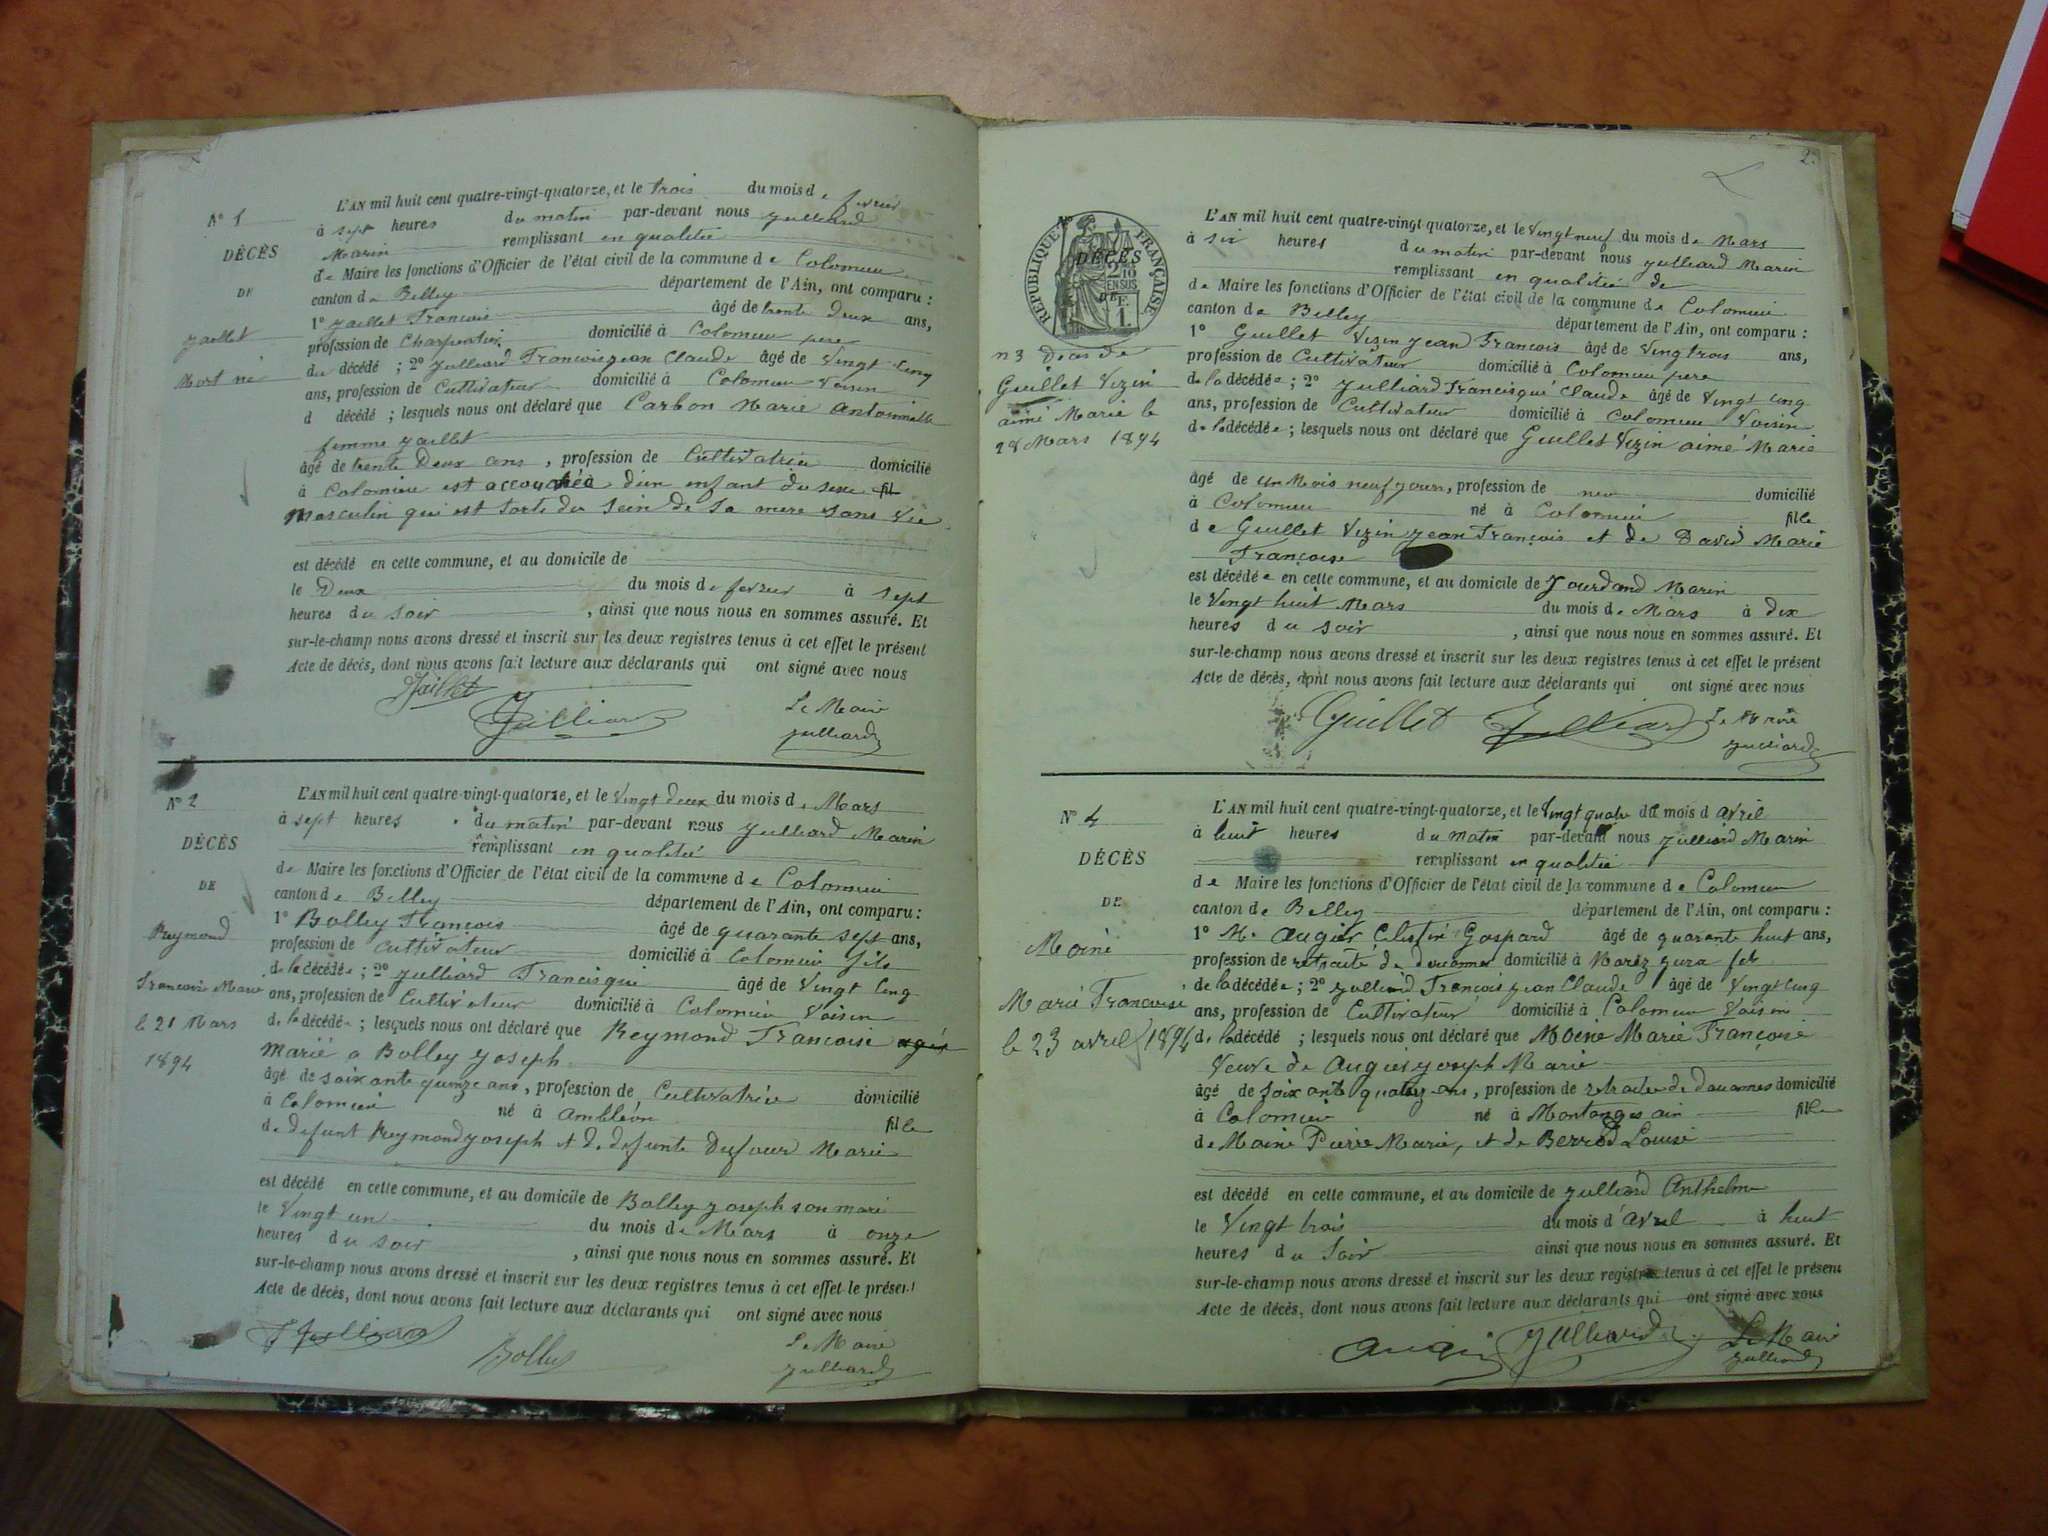 N° 1
DÉCÈS
DE
Jaillet
Mort né
L'AN mil huit cent quatre-vingt-quatorze, et le trois du mois de fevrier
à sept heures du matin par-devant nous Julliard
Marin remplissant en qualitée
de Maire les fonctions d'Officier de l'état civil de la commune de Colomieu
canton de Belley département de l'Ain, ont comparu :
1° Jaillet Francois âgé de trente deux ans,
profession de Charpentier domicilié à Colomieu pere
du décédé ; 2° Julliard Francois jean Claude âgé de Vingt Cinq
ans, profession de Cultivateur domicilié à Colomieu Voisin
d décédé ; lesquels nous ont déclaré que Carbon Marie Antoinette
femme Jaillet
âgé de trente Deux ans, profession de Cultivatrice domicilié
à Colomieu est accouchéà d'un enfant du sexe fil
Masculin qui est Sorti du Sein de Sa mere Sans Vie
est décédé en cette commune, et au domicile de
le Deux du mois de fevrier à sept
heures du soir, ainsi que nous nous en sommes assuré. Et
sur-le-champ nous avons dressé et inscrit sur les deux registres tenus à cet effet le présent
Acte de décès, dont nous avons fait lecture aux déclarants qui ont signé avec nous
Jaillet Julliard Le Maire
Julliard
N° 2
DÉCÈS
DE
Reymond
Francoise Marie
le 21 Mars
1894
L'AN mil huit cent quatre-vingt-quatorze, et le Vingt deux du mois de Mars
à sept heures du matin par-devant nous Julliard Marin
remplissant en qualitée
de Maire les fonctions d'Officier de l'état civil de la commune de Colomieu
canton de Belley département de l'Ain, ont comparu :
1° Bolley François âgé de quarante sept ans,
profession de Cultivateur domicilié à Colomieu fils
de la décédée ; 2° Julliard Francisque âgé de Vingt Cinq
ans, profession de Cultivateur domicilié à Colomieu Voisin
de la décédée ; lesquels nous ont déclaré que Reymond Francoise
Marié a Bolley Joseph
âgé de soixante quinze ans, profession de Cultivatrice domicilié
à Colomieu né à Ambléon fille
de defunt Reymond Joseph et de defunte Dufour Marie
est décédé en cette commune, et au domicile de Bolley Joseph son mari
le Vingt un du mois de Mars à onze
heures du soir, ainsi que nous nous en sommes assuré. Et
sur-le-champ nous avons dressé et inscrit sur les deux registres tenus à cet effet le présent
Acte de décès, dont nous avons fait lecture aux déclarants qui ont signé avec nous
Julliard Bolley Le Maire
Julliard
2.
N°
DÉCÈS
DE
RÉPUBLIQUE FRANÇAISE
2/10 EN SUS
1 F.
n3 Deces de
Guillet Vizin
aimé Marie le
28 Mars 1894
L'AN mil huit cent quatre-vingt-quatorze, et le Vingt neuf du mois de Mars
à six heures du matin par-devant nous Julliard Marin
remplissant en qualitée de
de Maire les fonctions d'Officier de l'état civil de la commune de Colomieu
canton de Belley département de l'Ain, ont comparu :
1° Guillet Vizin Jean François âgé de Vingtrois ans,
profession de Cultivateur domicilié à Colomieu pere
de la décédée ; 2° Julliard Francisque Claude âgé de Vingt Cinq
ans, profession de Cultivateur domicilié à Colomieu Voisin
de la décédée ; lesquels nous ont déclaré que Guillet Vizin aimé Marie
âgé de un Mois neuf jours, profession de domicilié
à Colomieu né à Colomieu fille
de Guillet Vizin Jean François et de David Marie
Françoise
est décédée en cette commune, et au domicile de Jourdand Marin
le Vingt huit Mars du mois de Mars à dix
heures du soir, ainsi que nous nous en sommes assuré. Et
sur-le-champ nous avons dressé et inscrit sur les deux registres tenus à cet effet le présent
Acte de décès, dont nous avons fait lecture aux déclarants qui ont signé avec nous
Guillet Julliard Le Maire
Julliard
N° 4
DÉCÈS
DE
Moine
Marie Francoise
le 23 avril 1894
L'AN mil huit cent quatre-vingt-quatorze, et le Vingt quatre du mois d avril
à huit heures du matin par-devant nous Julliard Marin
remplissant en qualitée
de Maire les fonctions d'Officier de l'état civil de la commune de Colomieu
canton de Belley département de l'Ain, ont comparu :
1° M. Augier Célestin Gaspard âgé de quarante huit ans,
profession de retraité de douannes domicilié à Morez Jura fils
de la décédée ; 2° Julliard François Jean Claude âgé de Vingt Cinq
ans, profession de Cultivateur domicilié à Colomieu Voisin
de la décédé ; lesquels nous ont déclaré que Moine Marie Françoise
Veuve de Augier Joseph Marie
âgé de soixante quatorze ans, profession de retraitée de douannes domicilié
à Colomieu né à Montanges ain fille
de Moine Pierre Marie, et de Berrod Louise
est décédé en cette commune, et au domicile de Julliard Anthelme
le Vingt trois du mois d'avril à huit
heures du Soir ainsi que nous nous en sommes assuré. Et
sur-le-champ nous avons dressé et inscrit sur les deux registres tenus à cet effet le présent
Acte de décès, dont nous avons fait lecture aux déclarants qui ont signé avec nous
Augier Julliard Le Maire
Julliard